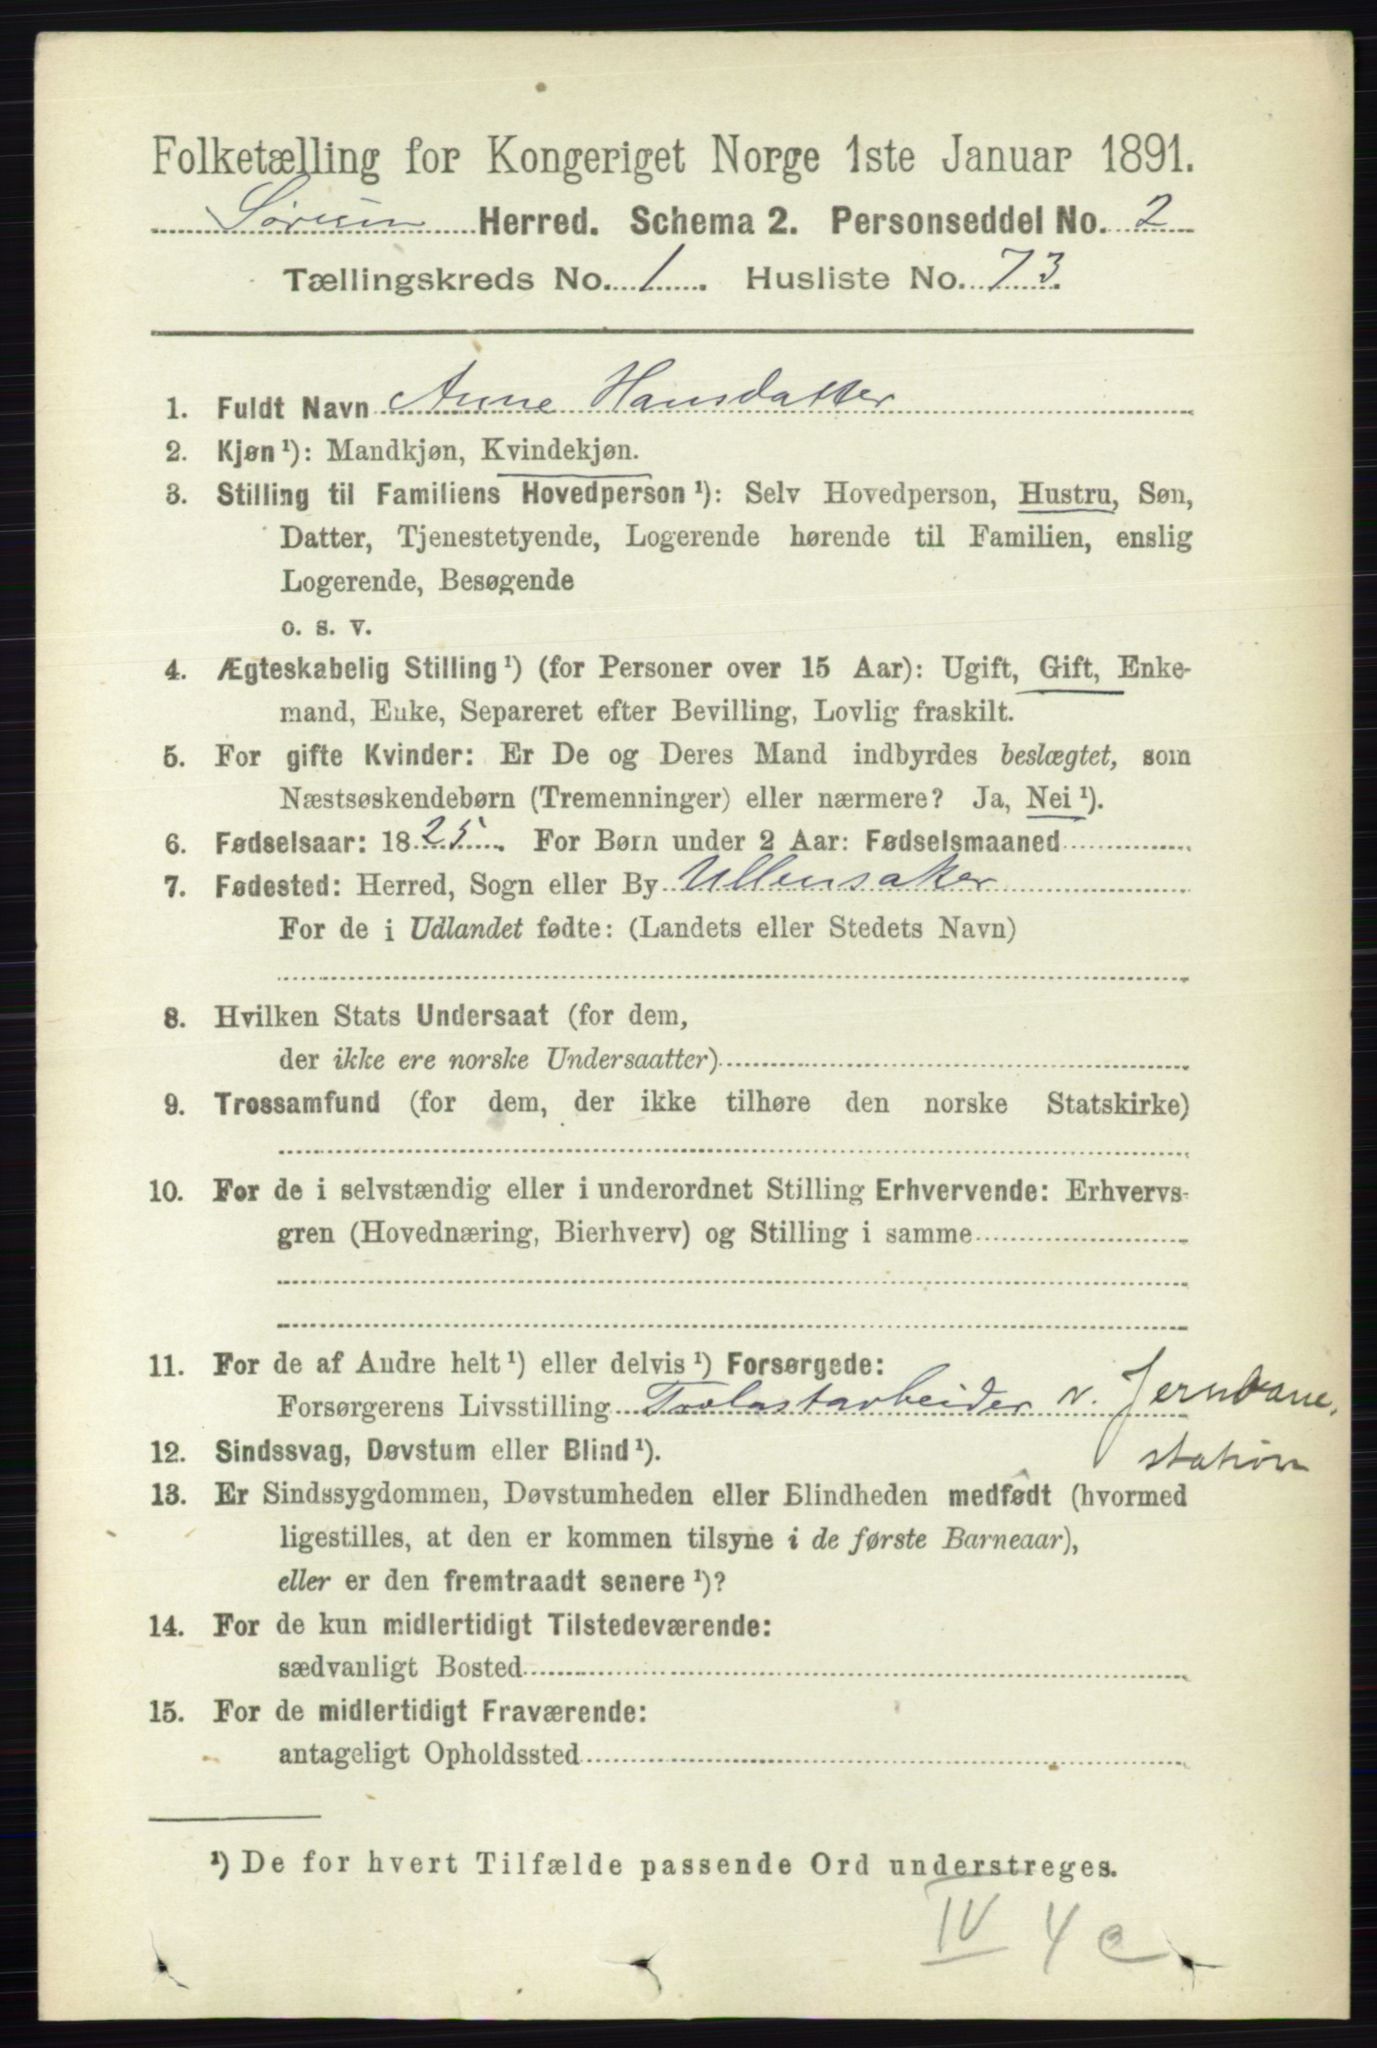 Folketælling for Kongeriget Norge 1ste Januar 1891.
Sørum Herred. Schema 2. Personseddel No. 2
Tællingskreds No. 1. Husliste No. 73.
1. Fuldt Navn Anne Hansdatter
2. Kjøn ¹): Mandkjøn, Kvindekjøn.
3. Stilling til Familiens Hovedperson ¹): Selv Hovedperson, Hustru, Søn,
Datter, Tjenestetyende, Logerende hørende til Familien, enslig
Logerende, Besøgende
o. s. v.
4. Ægteskabelig Stilling ¹) (for Personer over 15 Aar): Ugift, Gift, Enke-
mand, Enke, Separeret efter Bevilling, Lovlig fraskilt.
5. For gifte Kvinder: Er De og Deres Mand indbyrdes beslægtet, som
Næstsøskendebørn (Tremenninger) eller nærmere? Ja, Nei ¹).
6. Fødselsaar: 1825. For Børn under 2 Aar: Fødselsmaaned
7. Fødested: Herred, Sogn eller By Ullensaker
For de i Udlandet fødte: (Landets eller Stedets Navn)
8. Hvilken Stats Undersaat (for dem,
der ikke ere norske Undersaatter)
9. Trossamfund (for dem, der ikke tilhøre den norske Statskirke)
10. For de i selvstændig eller i underordnet Stilling Erhvervende: Erhvervs-
gren (Hovednæring, Bierhverv) og Stilling i samme
11. For de af Andre helt ¹) eller delvis ¹) Forsørgede:
Forsørgerens Livsstilling Trælastarbeider v. Jernbane,
station
12. Sindssvag, Døvstum eller Blind ¹).
13. Er Sindssygdommen, Døvstumheden eller Blindheden medfødt (hvormed
ligestilles, at den er kommen tilsyne i de første Barneaar),
eller er den fremtraadt senere ¹)?
14. For de kun midlertidigt Tilstedeværende:
sædvanligt Bosted
15. For de midlertidigt Fraværende:
antageligt Opholdssted
¹) De for hvert Tilfælde passende Ord understreges.
IV 4 c